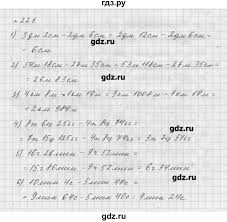 гдз.ру
№ 221
1) 3дм 2см - 2дм 6см = 2дм 12см - 2дм 6см =
= 6см
2) 54м 18см - 27м 35см = 53м 118см - 27м 35см =
= 26м 83см
3) 4км 8м - 1км 19м = 3км 1008м - 1км 19м =
= 2км 989м
4) 8т 6ц 25кг - 4т 7ц 74кг =
= 7т 15ц 125кг - 4т 7ц 74кг =
5) 16ч 26мин - 9ч 52мин =
= 15ч 86мин - 9ч 52мин = 6ч 34мин
6) 10мин 4с - 3мин 40с =
= 9мин 64с - 3мин 40с =
gdz.ru
gdz.ru
gdz.ru
gdz.ru
gdz.ru
gdz.ru
gdz.ru